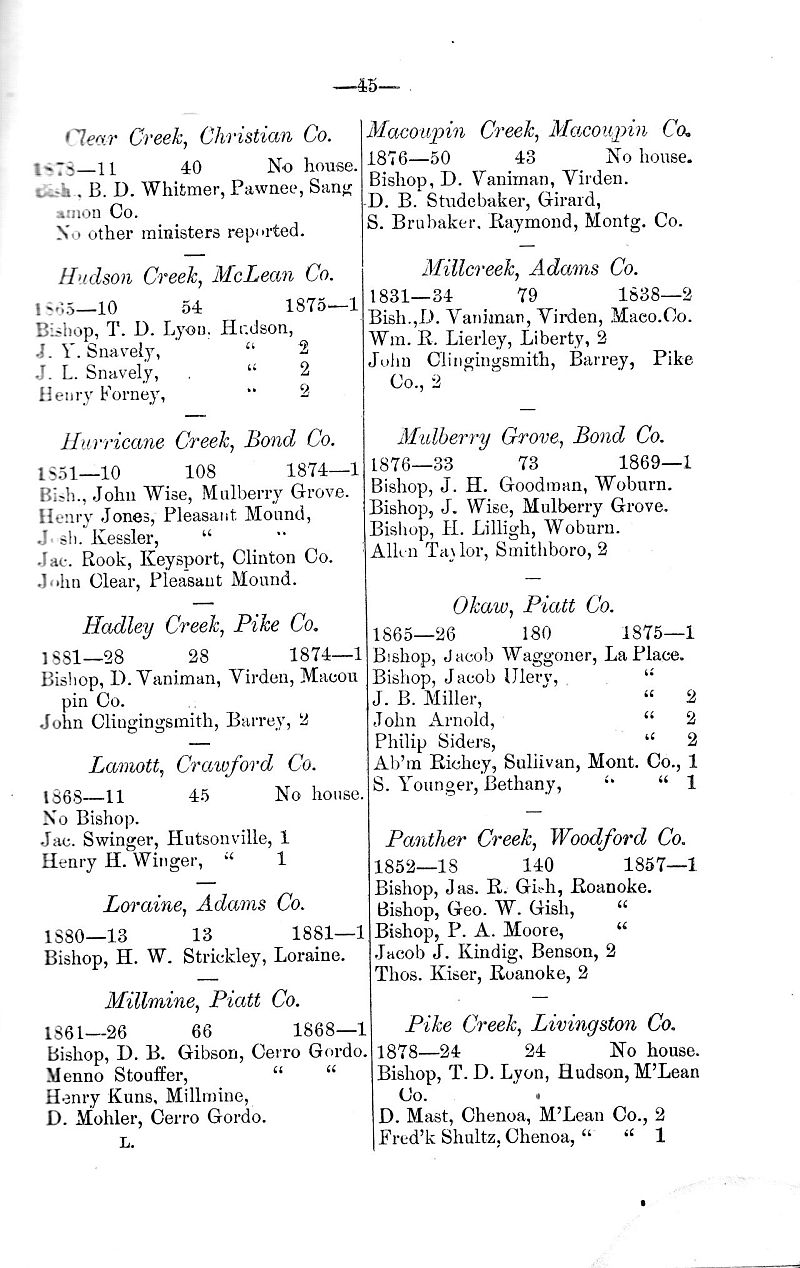 —45—
Clear Creek, Christian Co.
1878—11 40 No house.
Bish., B. D. Whitmer, Pawnee, Sang
amon Co.
No other ministers reported.
Hudson Creek, McLean Co.
1865—10 54 1875—1
Bishop, T. D. Lyon, Hudson,
J. Y. Snavely, “ 2
J. L. Snavely, “ 2
Henry Forney, “ 2
Hurricane Creek, Bond Co.
1851—10 108 1874—1
Bish., John Wise, Mulberry Grove.
Henry Jones, Pleasant Mound,
Josh. Kessler, “ “
Jac. Rook, Keysport, Clinton Co.
John Clear, Pleasant Mound.
Hadley Creek, Pike Co.
1881—28 28 1874—1
Bishop, D. Vaniman, Virden, Macou
pin Co.
John Clingingsmith, Barrey, 2
Lamott, Crawford Co.
1868—11 45 No house.
No Bishop.
Jac. Swinger, Hutsonville, 1
Henry H. Winger, “ 1
Loraine, Adams Co.
1880—13 13 1881—1
Bishop, H. W. Strickley, Loraine.
Millmine, Piatt Co.
1861—26 66 1868—1
Bishop, D. B. Gibson, Cerro Gordo.
Menno Stouffer, “ “
Henry Kuns, Millmine,
D. Mohler, Cerro Gordo.
L.
Macoupin Creek, Macoupin Co.
1876—50 43 No house.
Bishop, D. Vaniman, Virden.
D. B. Studebaker, Girard,
S. Brubaker, Raymond, Montg. Co.
Millcreek, Adams Co.
1831—34 79 1838—2
Bish., D. Vaniman, Virden, Maco.Co.
Wm. R. Lierley, Liberty, 2
John Clingingsmith, Barrey, Pike
Co., 2
Mulberry Grove, Bond Co.
1876—33 73 1869—1
Bishop, J. H. Goodman, Woburn.
Bishop, J. Wise, Mulberry Grove.
Bishop, H. Lilligh, Woburn.
Allen Taylor, Smithboro, 2
Okaw, Piatt Co.
1865—26 180 1875—1
Bishop, Jacob Waggoner, La Place.
Bishop, Jacob Ulery, “
J. B. Miller, “ 2
John Arnold, “ 2
Philip Siders, “ 2
Ab’m Richey, Sullivan, Mont. Co., 1
S. Younger, Bethany, “ “ 1
Panther Creek, Woodford Co.
1852—18 140 1857—1
Bishop, Jas. R. Gish, Roanoke.
Bishop, Geo. W. Gish, “
Bishop, P. A. Moore, “
Jacob J. Kindig, Benson, 2
Thos. Kiser, Roanoke, 2
Pike Creek, Livingston Co.
1878—24 24 No house.
Bishop, T. D. Lyon, Hudson, M’Lean
Co.
D. Mast, Chenoa, M’Lean Co., 2
Fred’k Shultz, Chenoa, “ “ 1